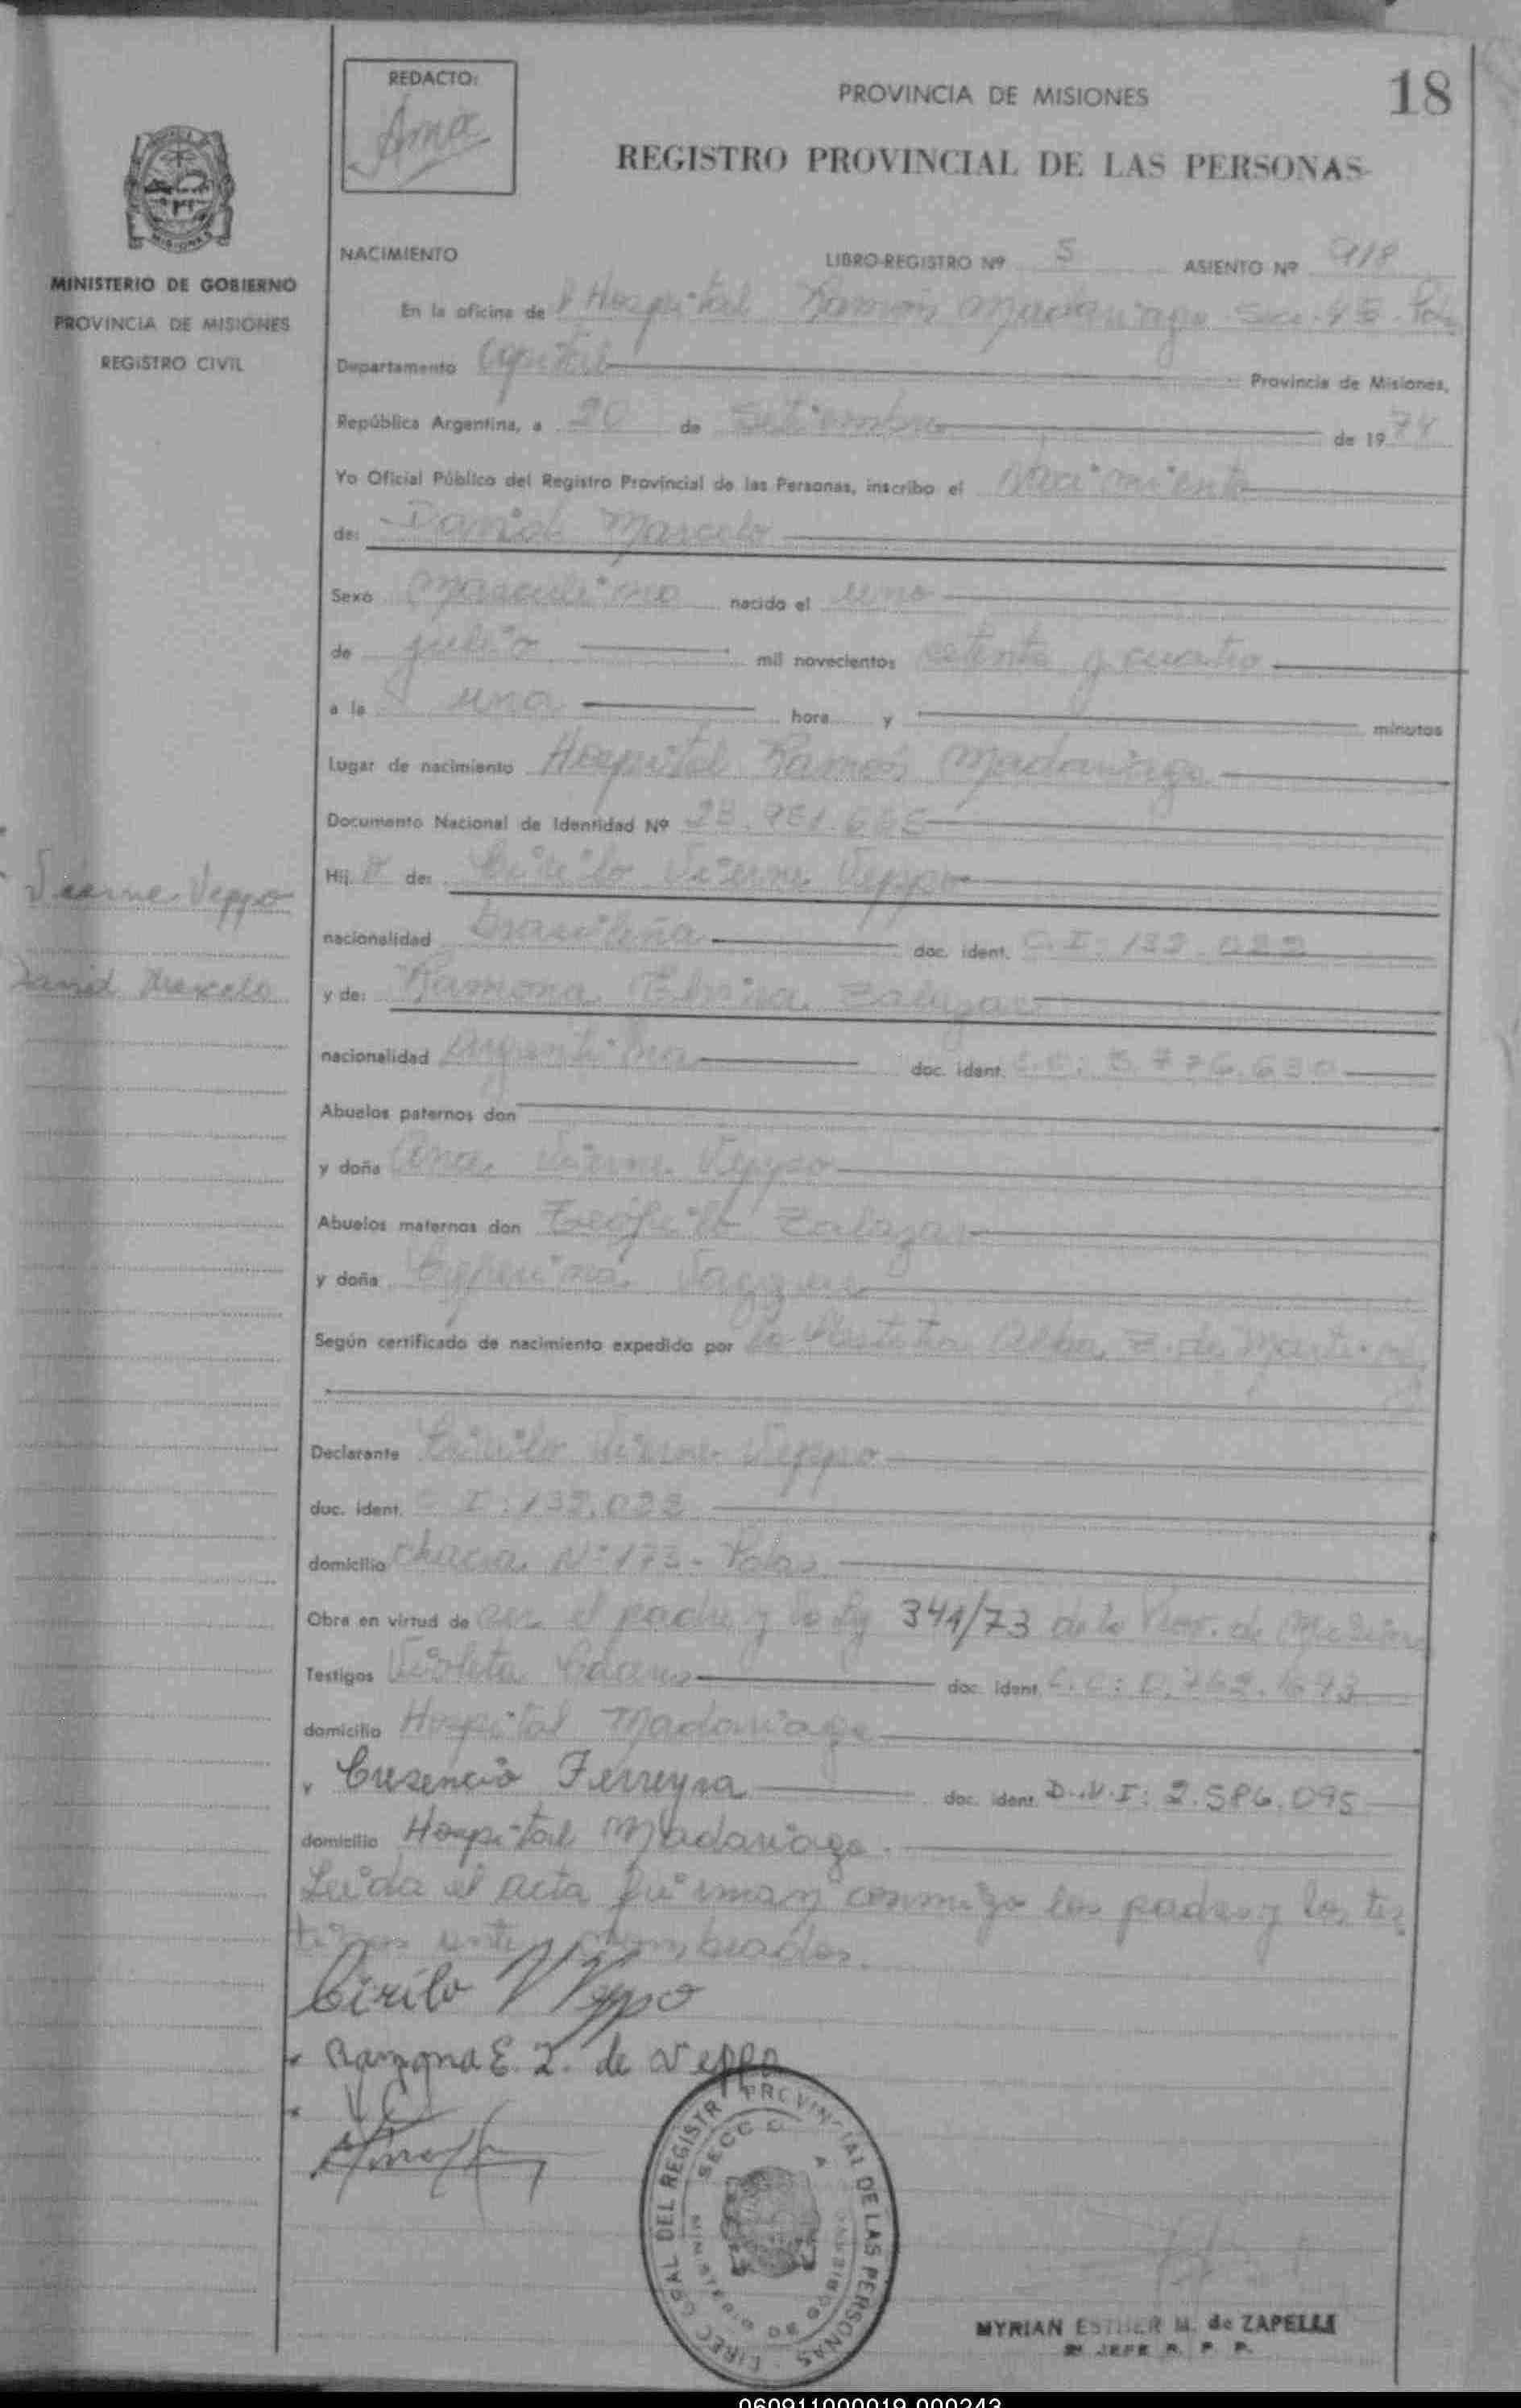 REDACTO:
Ama
PROVINCIA DE MISIONES
18
REGISTRO PROVINCIAL DE LAS PERSONAS
MISIONES
MINISTERIO DE GOBIERNO
PROVINCIA DE MISIONES
REGISTRO CIVIL
NACIMIENTO
LIBRO-REGISTRO Nº 5 ASIENTO Nº 918
En la oficina de l Hospital Ramón Madariaga Secc.
Departamento Capital Provincia de Misiones,
República Argentina, a 20 de Setiembre de 1974
Yo Oficial Público del Registro Provincial de las Personas, inscribo el Nacimiento
de: Daniel Marcelo
Sexo Masculino nacido el uno
de julio mil novecientos setenta y cuatro
a la una hora y minutos
Lugar de nacimiento Hospital Ramón Madariaga
Documento Nacional de Identidad Nº
Hij o de: Cirilo Vierne Veppo
Vierne Veppo
nacionalidad brasileña doc. ident. C.I: 132.022
Marcelo
y de: Ramona Elvira Zalazar
nacionalidad Argentina doc. ident.
Abuelos paternos don
y doña Ana Vierne Veppo
Abuelos maternos don Teófilo Zalazar
y doña
Según certificado de nacimiento expedido por la Partera Alba Z. de Martinez
Declarante Cirilo Vierne Veppo
doc. ident. C I: 132.022
domicilio chacra Nº 173 - Pdas.
Obra en virtud de ser el padre y la Ley 341/73 de la Prov. de Misiones
Testigos Violeta doc. ident.
domicilio Hospital Madariaga
y Cresencio Ferreyra doc. ident. D.N.I: 2.586.095
domicilio Hospital Madariaga.
Leida el acta firman conmigo los padres y los tes
tigos antes nombrados.
Cirilo V Veppo
Ramona E. Z. de Veppo
DIREC GRAL DEL REGISTR PROVINCIAL DE LAS PERSONAS
MINISTERIO DE GOBIERNO
MYRIAN ESTHER M. de ZAPELLI
JEFE R. P. P.
060911000019 000243